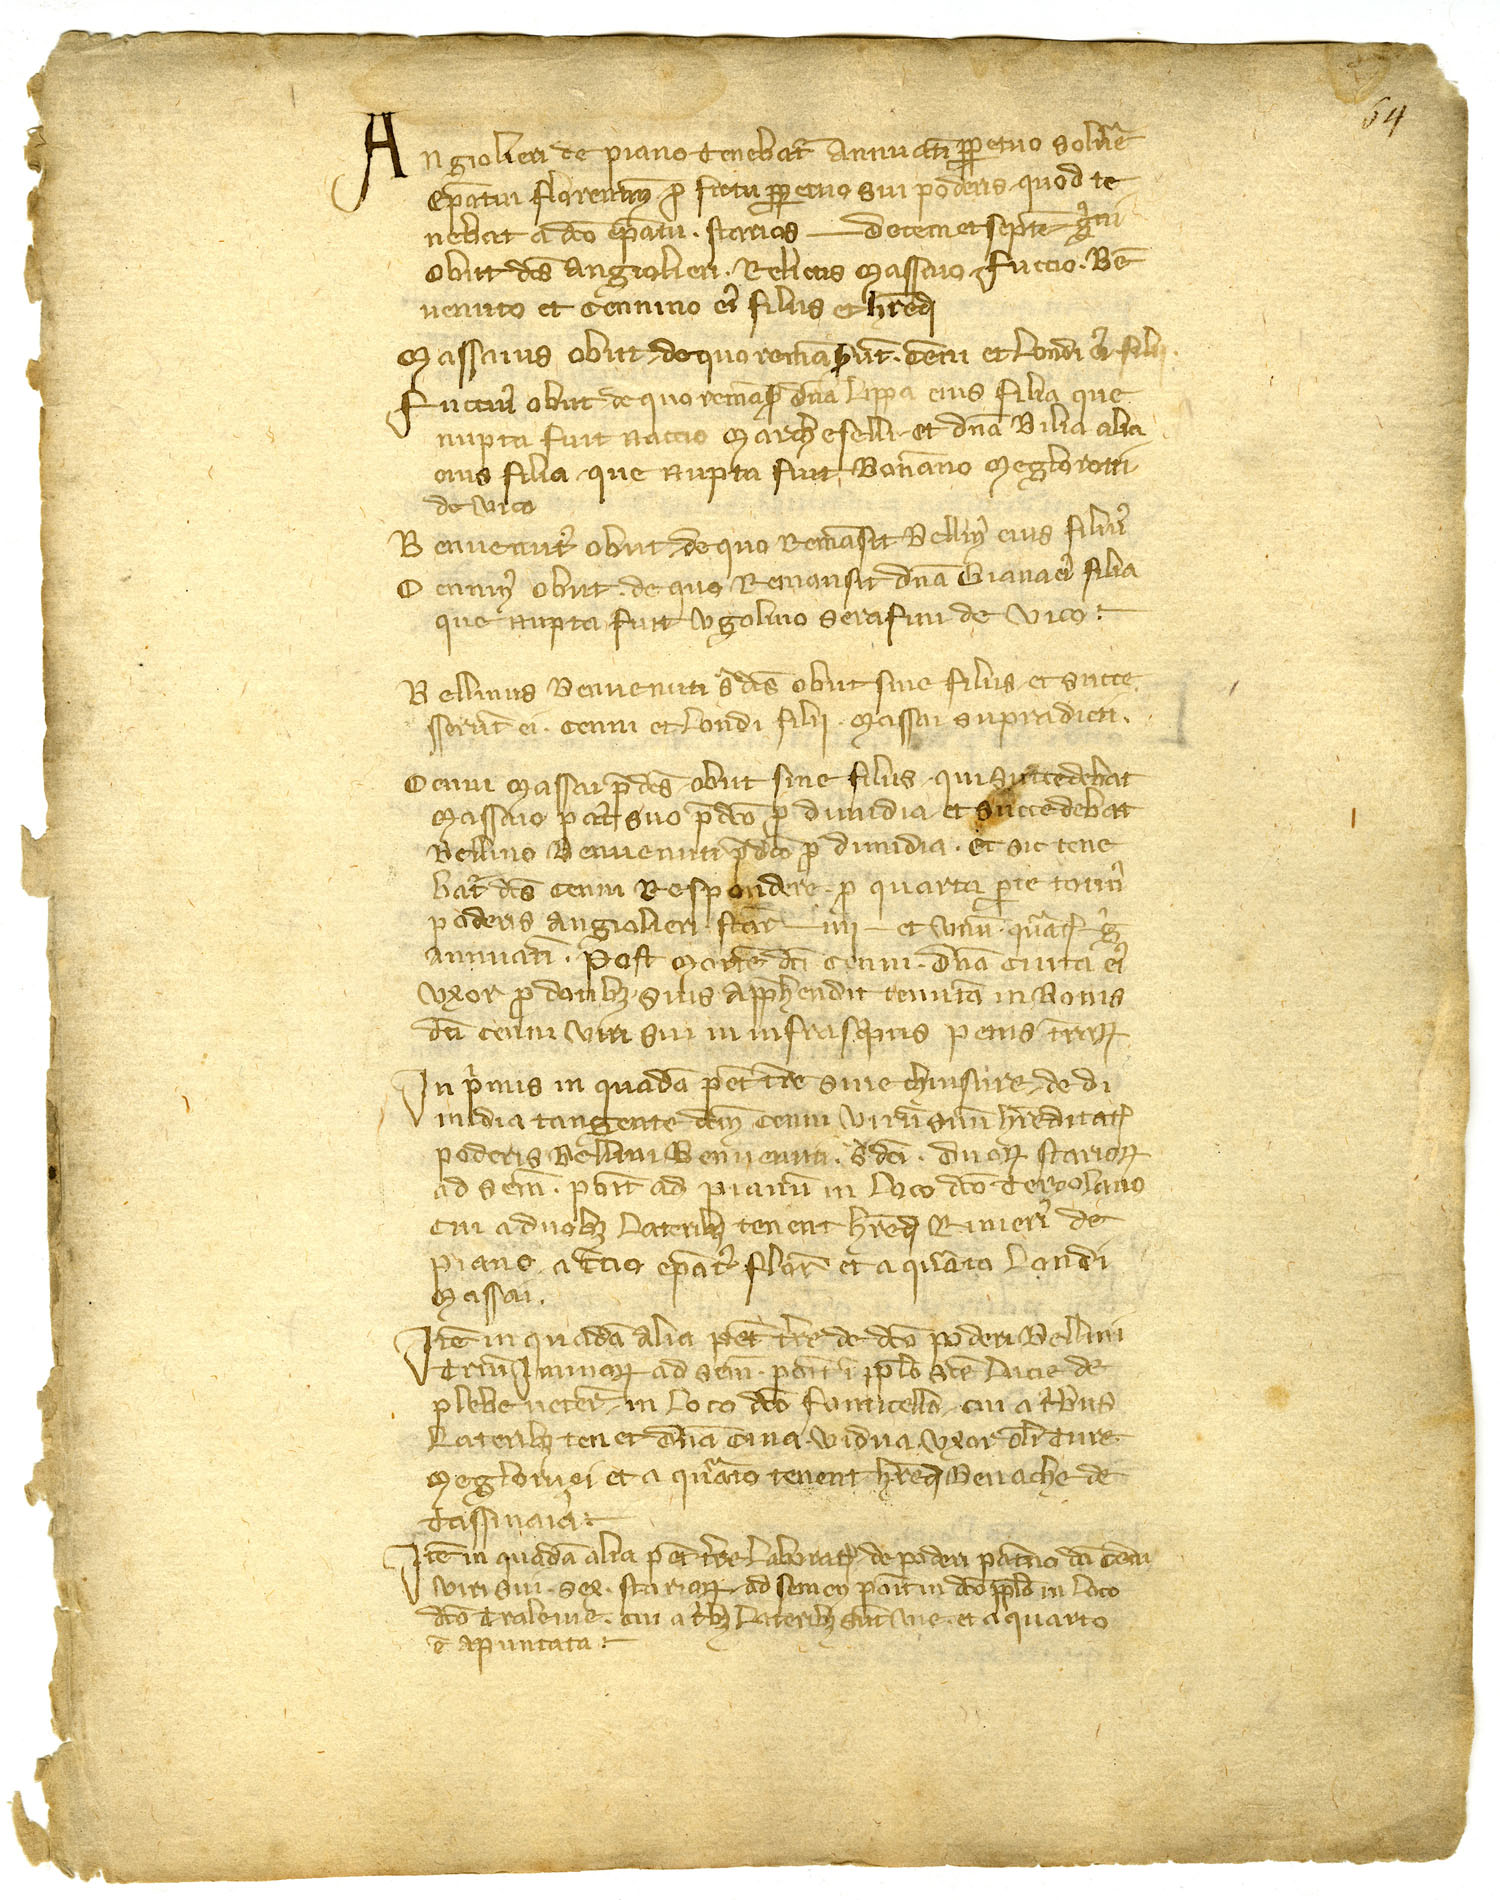 64
Angiolieri de piano tenebat᷑ annuati᷑ ꝑpetuo solue᷑
ep̄atui florentin᷑ ꝓ fictu ꝑpetuo sui poderis quod te
nebat a dc̄o ep̄atu. starios — decem et septē gᷓni
Obiit dc̄s Angiolieri. Relictis Massaio. Fuccio. Bē
venuto et Cennino ei᷑ filiis et hr̄ed
Massaius obiit, de quo remāserūt. Cēni et Londi ei᷑ filij.
Fucciu᷑ obiit de quo remās᷑ dn̄a Lippa eius filia que
nupta fuit Naccio Marcheselli et dn̄a Bilia alia
eius filia que nupta fuit Bonāno Meglorotti
de Vico
Benvenut᷑ obiit, de quo Remāsit Bellin᷑ eius filiu᷑
Cennin᷑ obiit. de quo Remansit dn̄a Giana ei᷑ filia
que nupta fuit Vgolino Serafini de Vico:
Bellinus Benvenuti s᷑ dc̄s obiit sine filiis et succe
sserūt ei. Cenni et Londi filij. Massai supradicti.
Cenni Massai p̄dc̄s obiit sine filiis. qui succedebat
Massaio pat᷑ suo p̄dc̄o ꝓ dimidia et succedebat
Bellino Benvenuti p̄dc̄o ꝓ dimidia. Et sic tene
bat᷑ dc̄s Cenni Respondere. ꝓ quarta ꝑte toti᷑
poderis Angiolieri. star᷑ — iiij — et unū. qᷓrt᷑ gᷓ
annuati᷑. Post Mortē dc̄i Cenni. dn̄a Ciuta ei᷑
Vxor ꝓ dotibꝫ suis apphendit tenutā in Bonis
dc̄i Cenni Viri sui in infrasc᷑ptis petiis tr̄aꝝ
In p᷑mis in quadā pet᷑ tr̄e sive chiusure, de di
midia tangente dc̄m Cenni Virū suū hr̄editat᷑
poderis Bellini Benvenuti. s᷑ dc̄i. duoꝝ starioꝝ
ad sem᷑. poit᷑ ad pianū in Loco dc̄o Tercolano
Cui a duobꝫ Lateribꝫ tenent hr̄ed Rinieri᷑ de
piano. a tᷓcio ep̄at᷑ flor᷑ et a qᷓrto Londi
Massai.
Itē in quadā alia pet᷑ tr̄e de dc̄o poderi Bellini
triū Iminaꝝ ad sem᷑. poit᷑ ī pp̄lo Sc̄e Lucie de
plebe veteri᷑ in Loco dc̄o fonticella. cui a t᷑bus
Lateribꝫ tenet dn̄a Cina. vidua, vxor ol᷑ Ture
Megloruzi et a qᷓrto tenent hr̄ed Benache de
Tassinaia:
Itē in quadā alia pet᷑ tr̄e Laborat᷑. de poderi pat᷑no dc̄i Cēni
Viri sui. Sex. starioꝝ. ad semen poit᷑ in dc̄o pp̄lo in Loco
dc̄o Tralevie. cui a t᷑bꝫ Lateribꝫ sūt vie. et a quarto
ē apuntata: